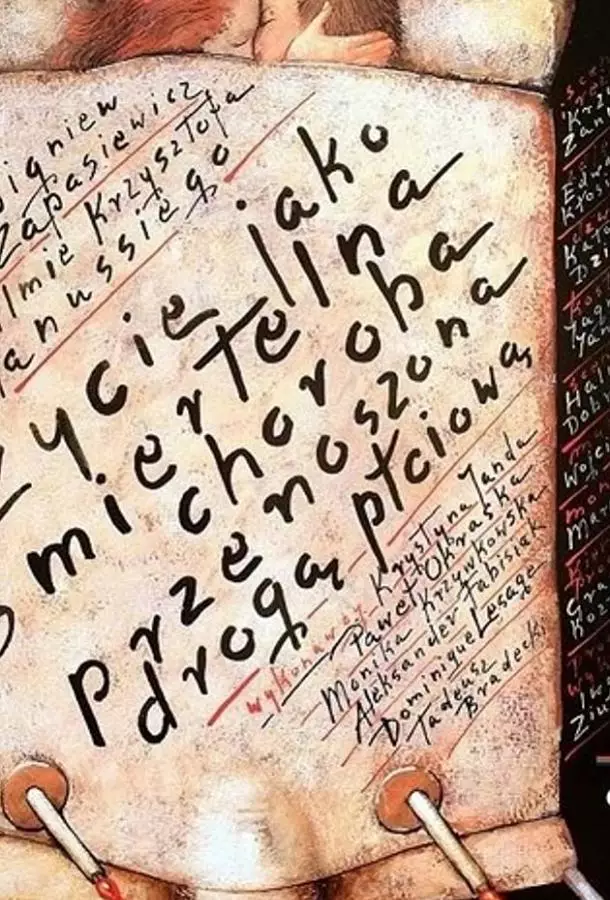 igniew
Zapasiewicz
lmie Krzysztofa
anussiego
życie jako
miertelna
choroba
przenoszona
drogą płciową
wykonawcy Krystyna Janda
Paweł Okraska
Monika Krzywkowska
Aleksander Fabisiak
Dominique Lesage
Tadeusz
Bradecki
Krz
Zan
Edw
Kłos
Hali
Dob
Wojci
Mar
Gra
Koz